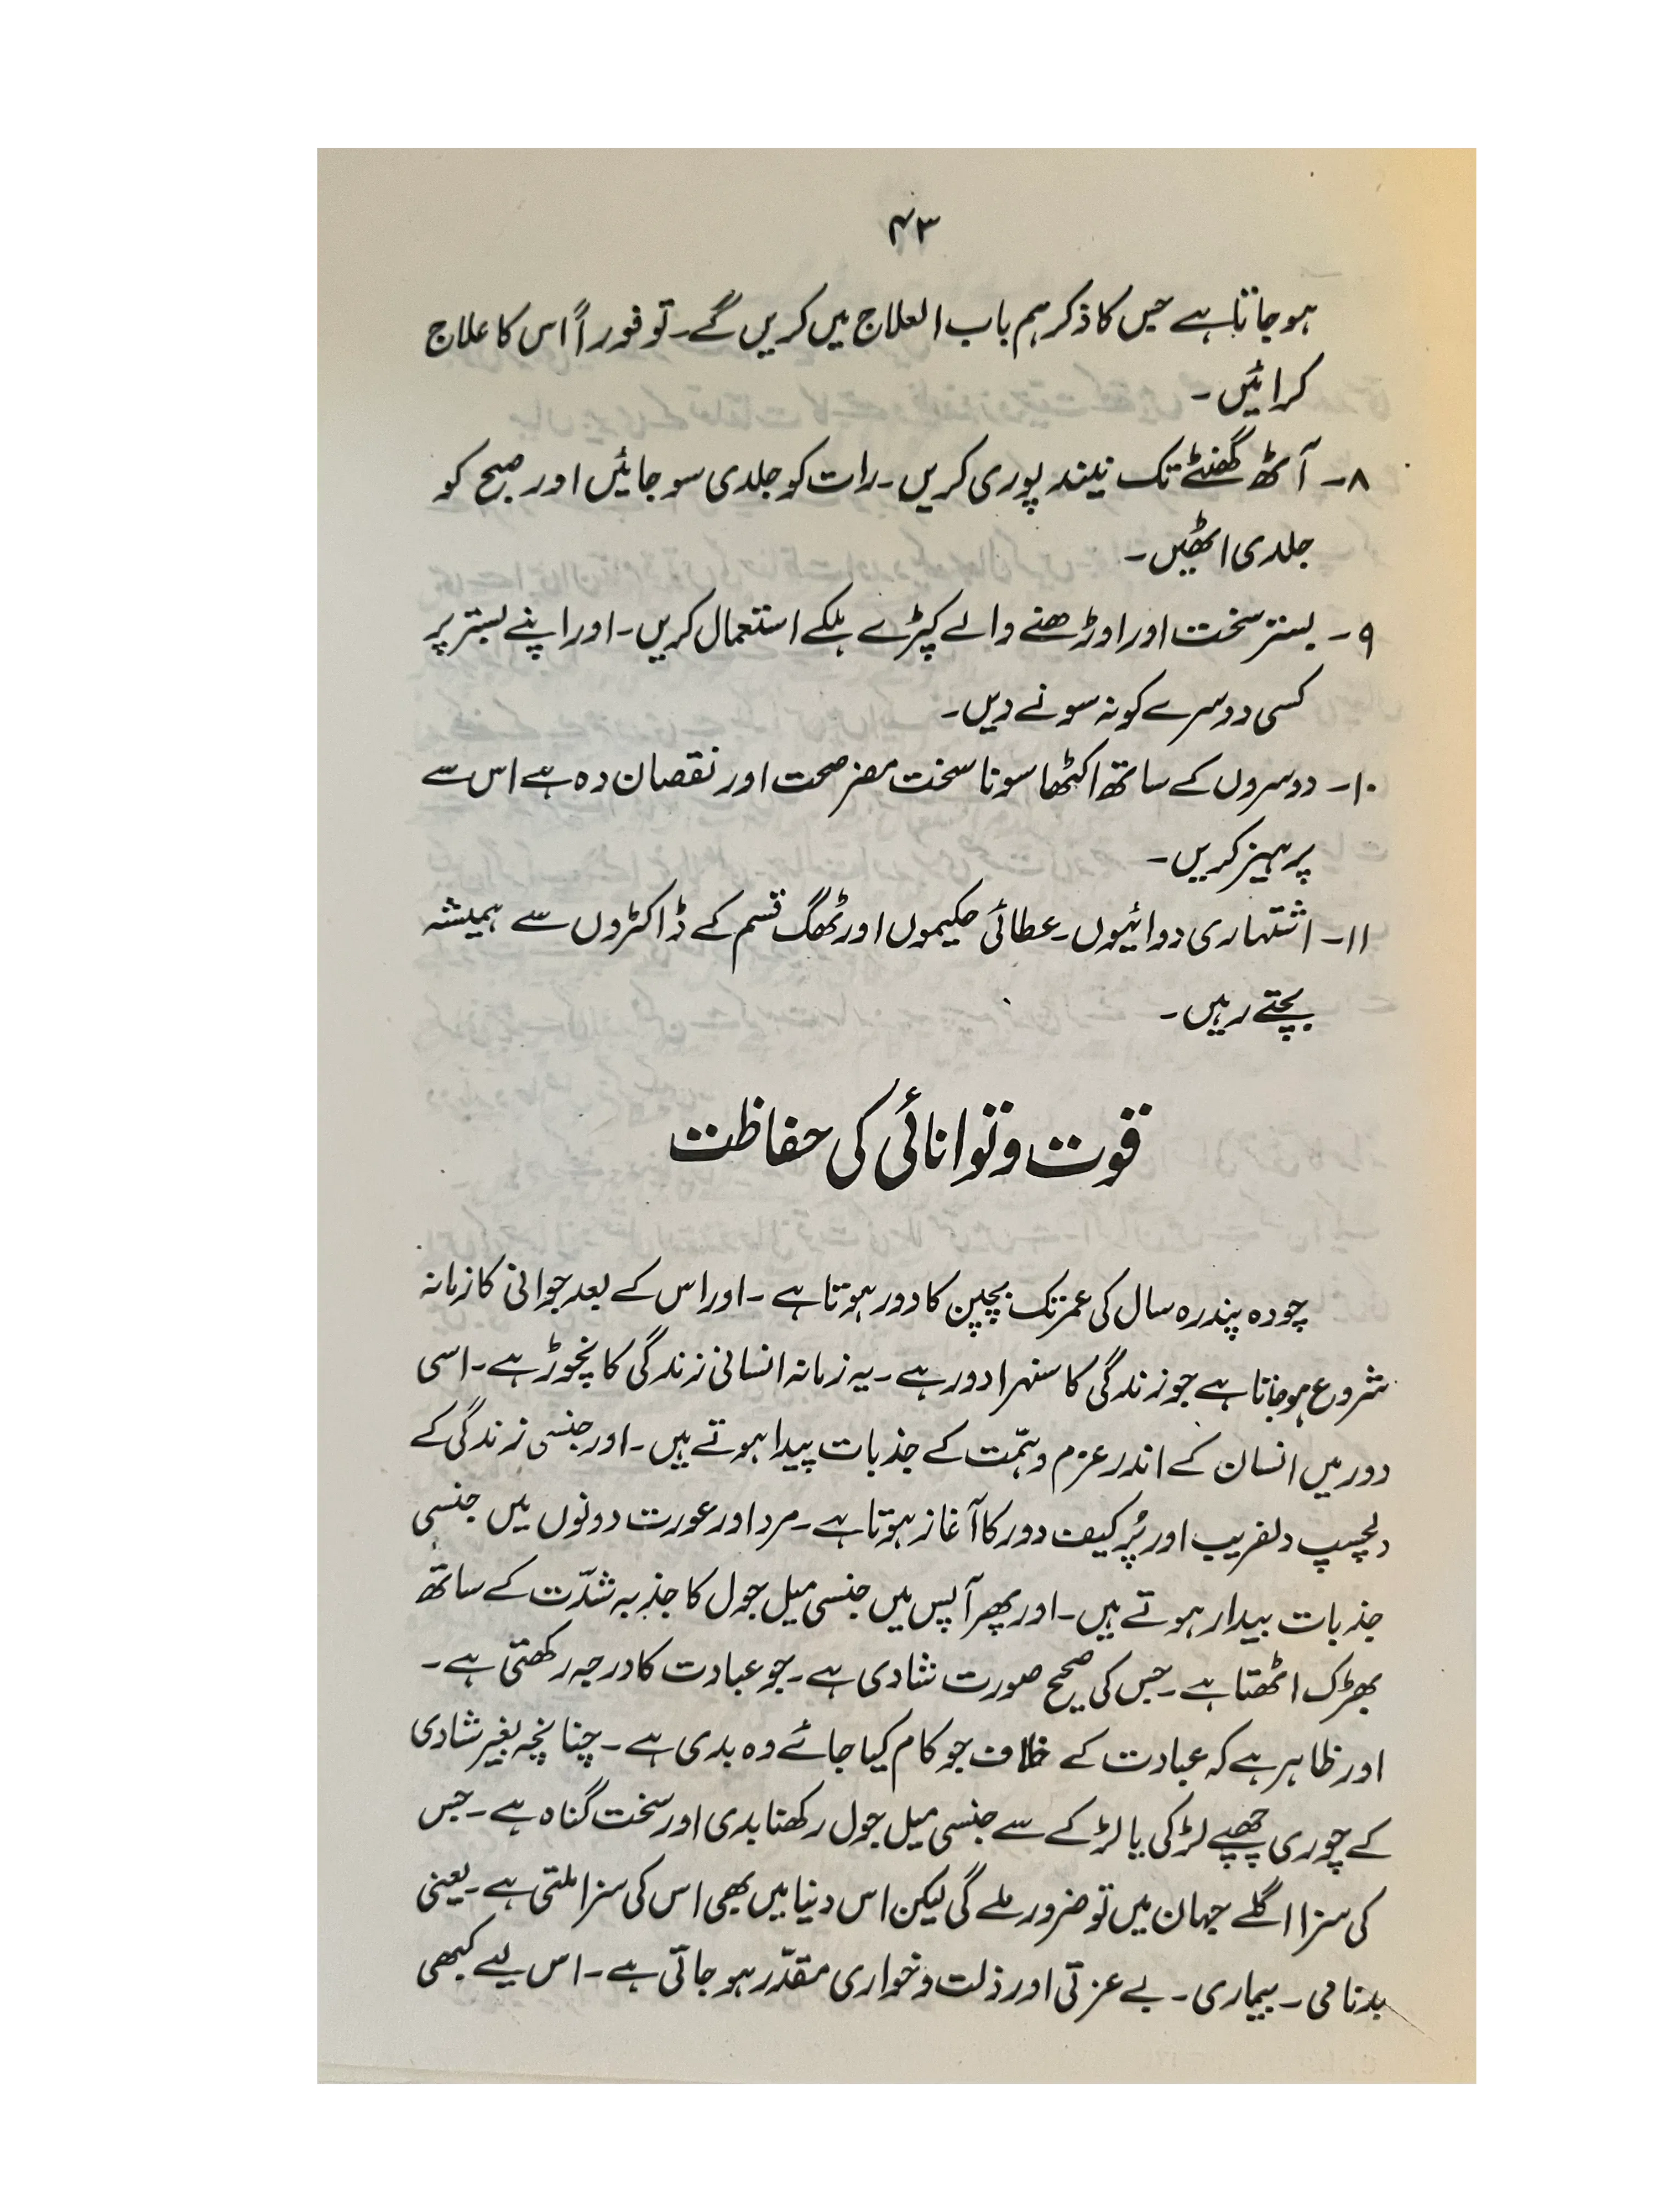 ۴۳
ہوجاتا ہے جس کا ذکر ہم باب العلاج میں کریں گے۔ تو فوراً اس کا علاج
کرائیں۔
۸۔ آٹھ گھنٹے تک نیند پوری کریں۔ رات کو جلدی سو جائیں اور صبح کو
جلدی اٹھیں۔
۹۔ بستر سخت اور اوڑھنے والے کپڑے ہلکے استعمال کریں۔ اور اپنے بستر پر
کسی دوسرے کو نہ سونے دیں۔
۱۰۔ دوسروں کے ساتھ اکٹھا سونا سخت مضر صحت اور نقصان دہ ہے اس سے
پرہیز کریں۔
۱۱۔ اشتہاری دوائیوں۔ عطائی حکیموں اور ٹھگ قسم کے ڈاکٹروں سے ہمیشہ
بچتے رہیں۔
قوت و توانائی کی حفاظت
چودہ پندرہ سال کی عمر تک بچپن کا دور ہوتا ہے۔ اور اس کے بعد جوانی کا زمانہ
شروع ہوجاتا ہے جو زندگی کا سنہرا دور ہے۔ یہ زمانہ انسانی زندگی کا نچوڑ ہے۔ اسی
دور میں انسان کے اندر عزم و ہمّت کے جذبات پیدا ہوتے ہیں۔ اور جنسی زندگی کے
دلچسپ دلفریب اور پُر کیف دور کا آغاز ہوتا ہے۔ مرد اور عورت دونوں میں جنسی
جذبات بیدار ہوتے ہیں۔ اور پھر آپس میں جنسی میل جول کا جذبہ شدّت کے ساتھ
بھڑک اٹھتا ہے۔ جس کی صحیح صورت شادی ہے۔ جو عبادت کا درجہ رکھتی ہے۔
اور ظاہر ہے کہ عبادت کے خلاف جو کام کیا جائے وہ بدی ہے۔ چنانچہ بغیر شادی
کے چوری چھپے لڑکی یا لڑکے سے جنسی میل جول رکھنا بدی اور سخت گناہ ہے۔ جس
کی سزا اگلے جہان میں تو ضرور ملے گی لیکن اس دنیا میں بھی اس کی سزا ملتی ہے۔ یعنی
بدنامی۔ بیماری۔ بے عزتی اور ذلت و خواری مقدّر ہو جاتی ہے۔ اس لیے کبھی